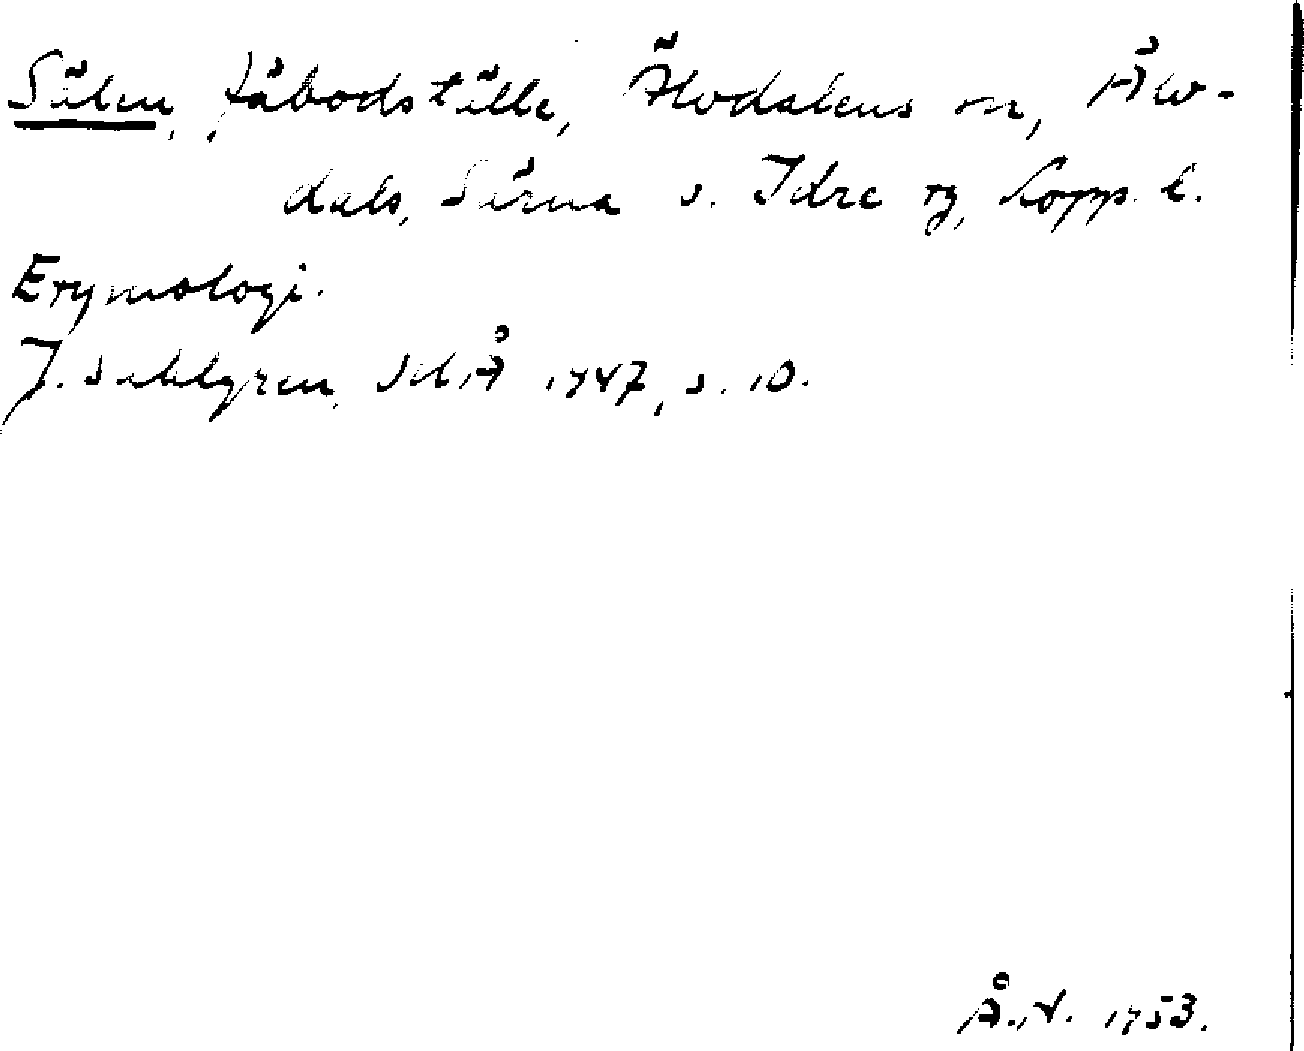 Sälen, fäbodställe, Älvdalens sn, Älv-
dals, Särna o. Idre tg, Kopp. l.
Etymologi.
J. Sahlgren, SdÅ 1947, s. 10.
Å.V. 1953.